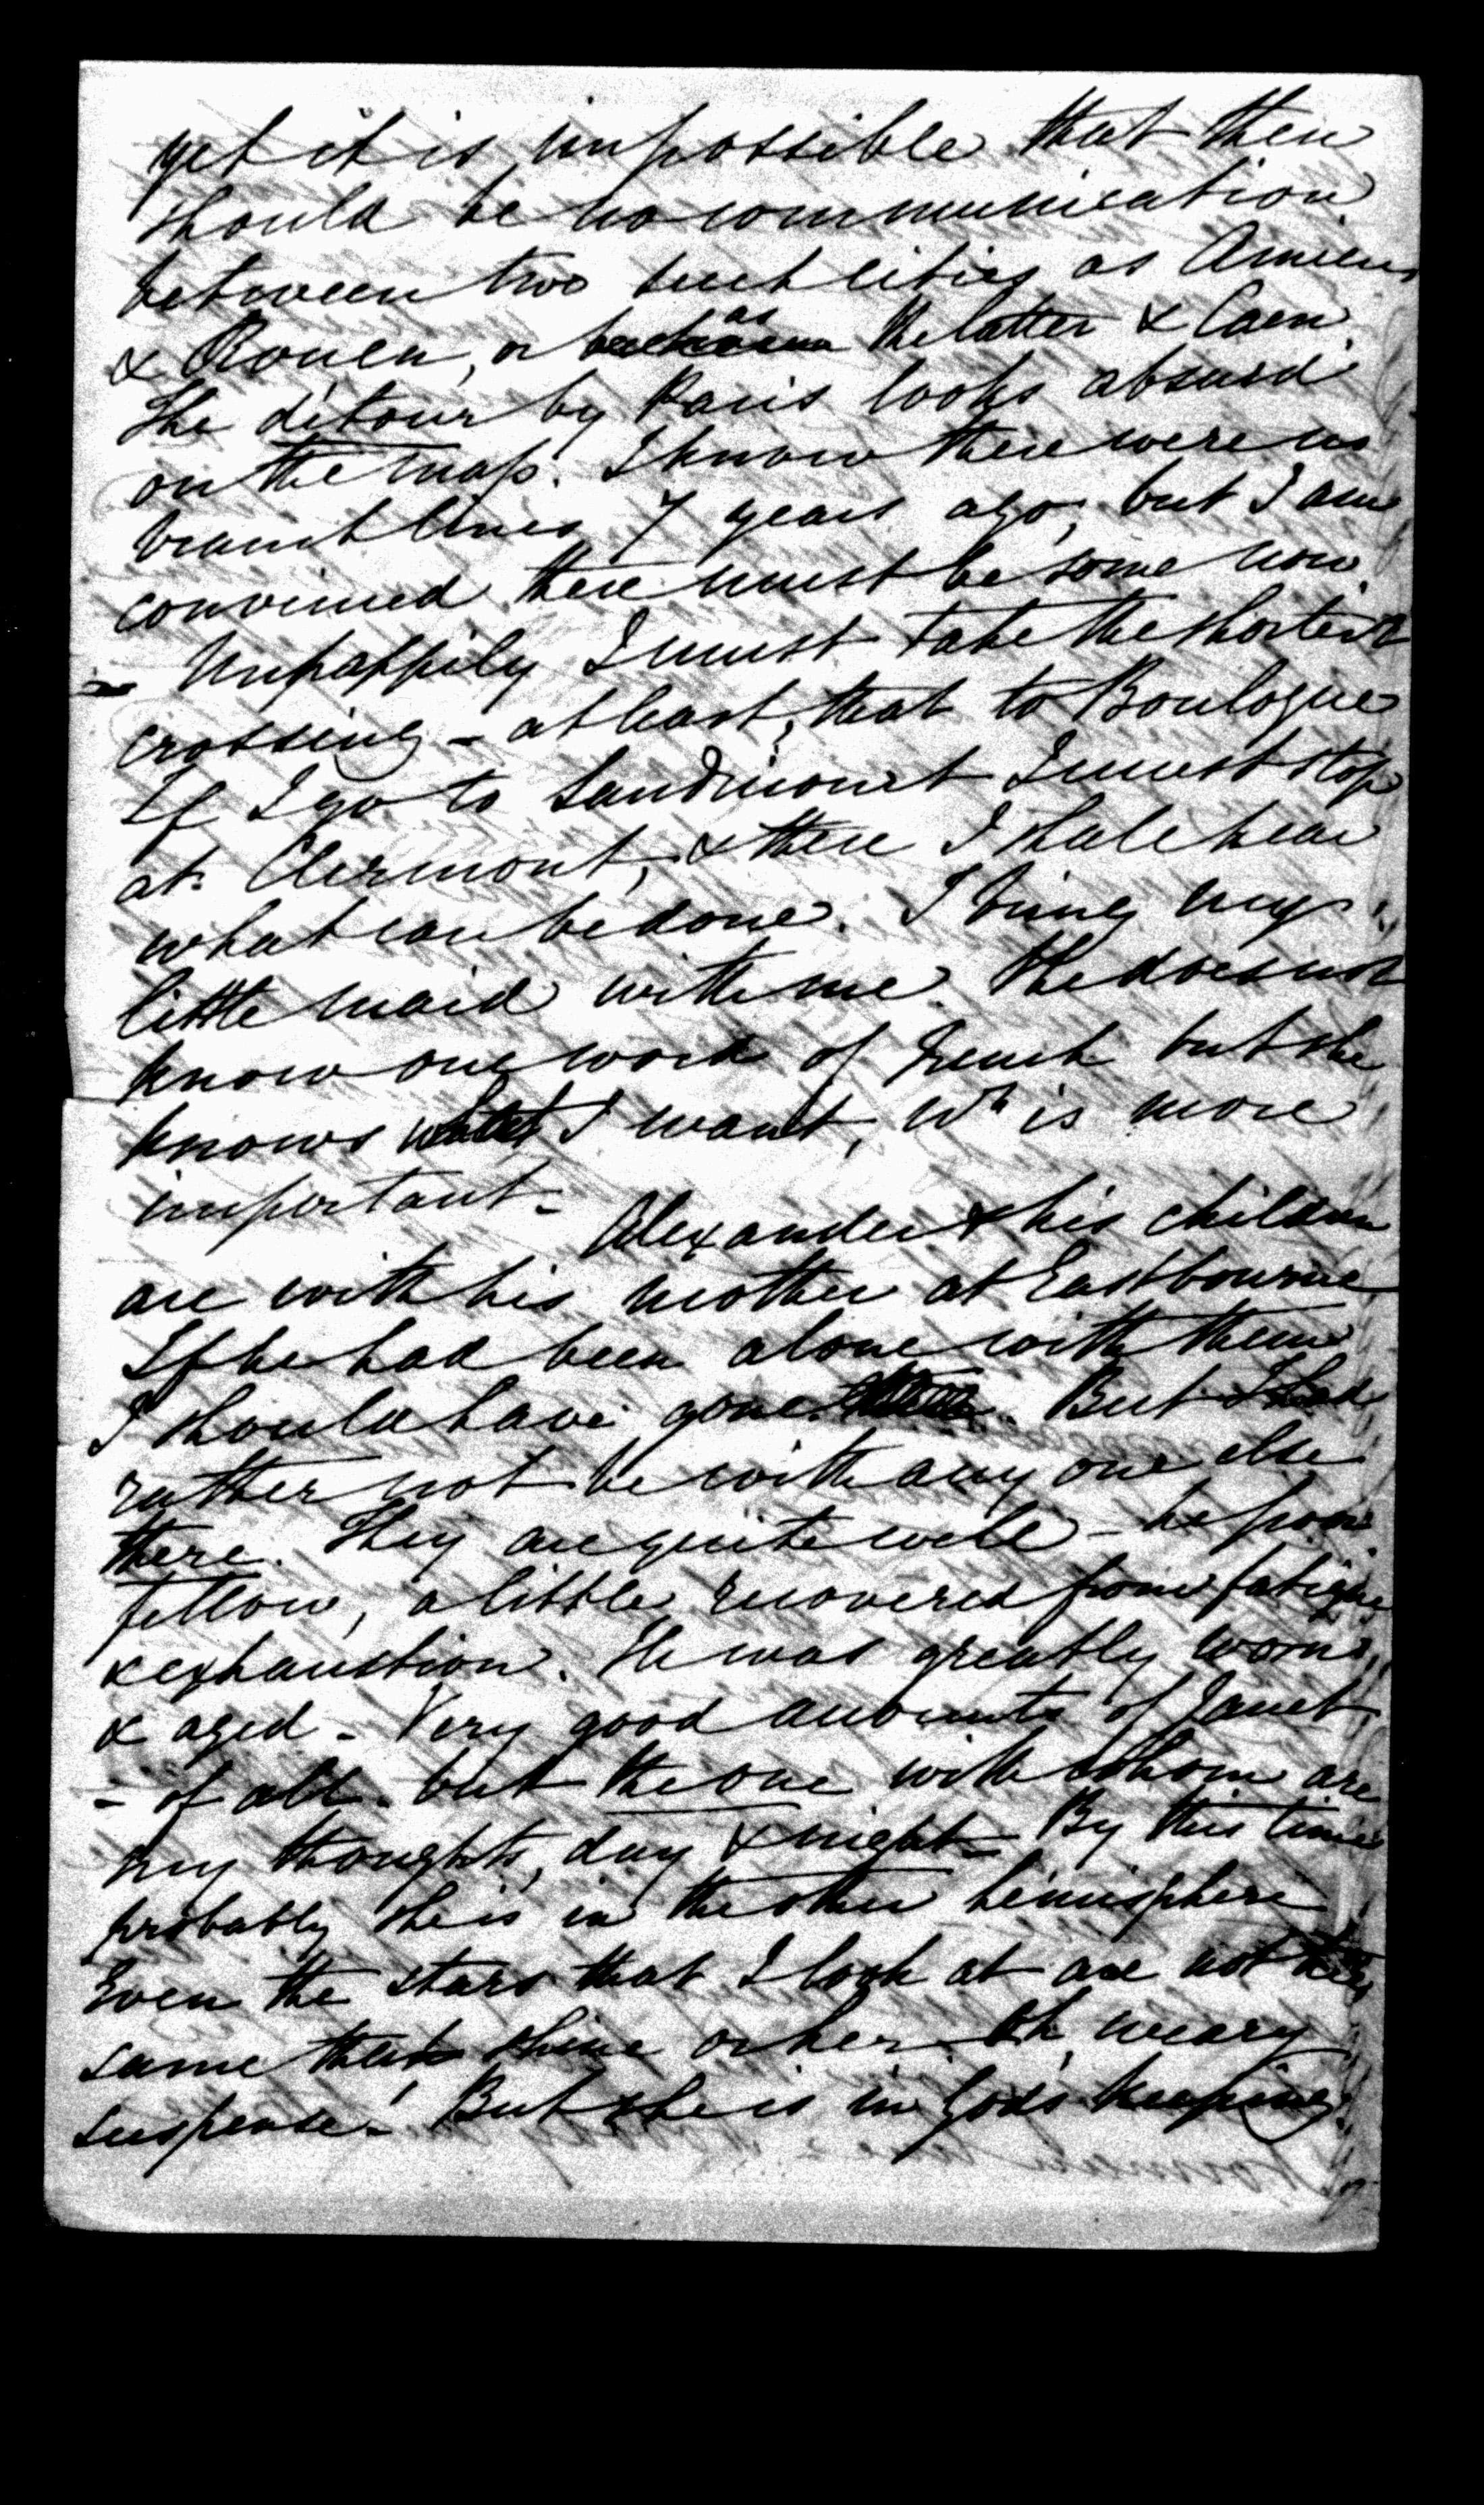 yet it is impossible that there
should be no communication
between two such cities as Amiens
& Rouen, or as the latter & Caen.
The détour by Paris looks absurd
on the map. I know there were no
branch lines 7 years ago, but I am
convinced there must be some now.
- Unhappily I must take the shortest
crossing - at least, that to Boulogne
If I go to Sandricourt I must stop
at Clermont, & there I shall hear
what can be done. I bring my
little maid with me. She does not
know one word of French but she
knows what I want, wh is more
important -
Alexander & his children
are with his mother at Eastbourne
If he had been alone with them
I should have gone. But I had
rather not be with any one else
there. They are quite well - he poor
fellow, a little recovered from fatigue
& exhaustion. He was greatly worn
& aged - Very good accounts of Janet
- of all - but the one with whom are
my thoughts, day & night - By this time
probably she is in the other hemisphere
Even the stars that I look at are not the
same that shine on her. Oh, weary
suspense! But she is in God's keeping